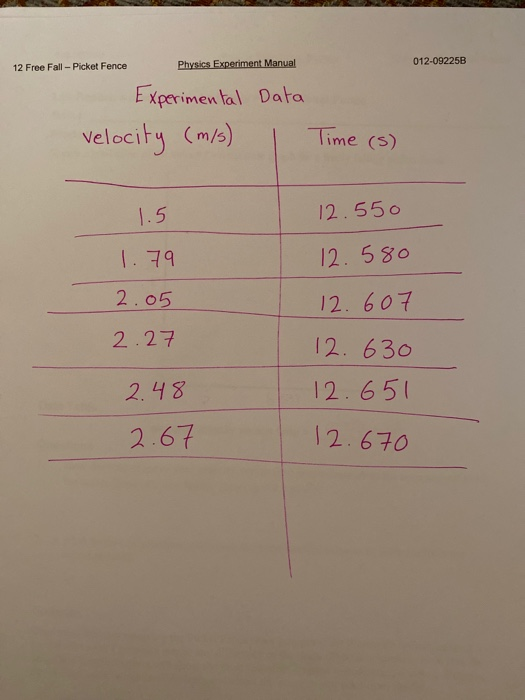 12 Free Fall – Picket Fence Physics Experiment Manual 012-09225B
Experimental Data
velocity (m/s) Time (s)
1.5 12.550
1.79 12.580
2.05 12.607
2.27 12.630
2.48 12.651
2.67 12.670